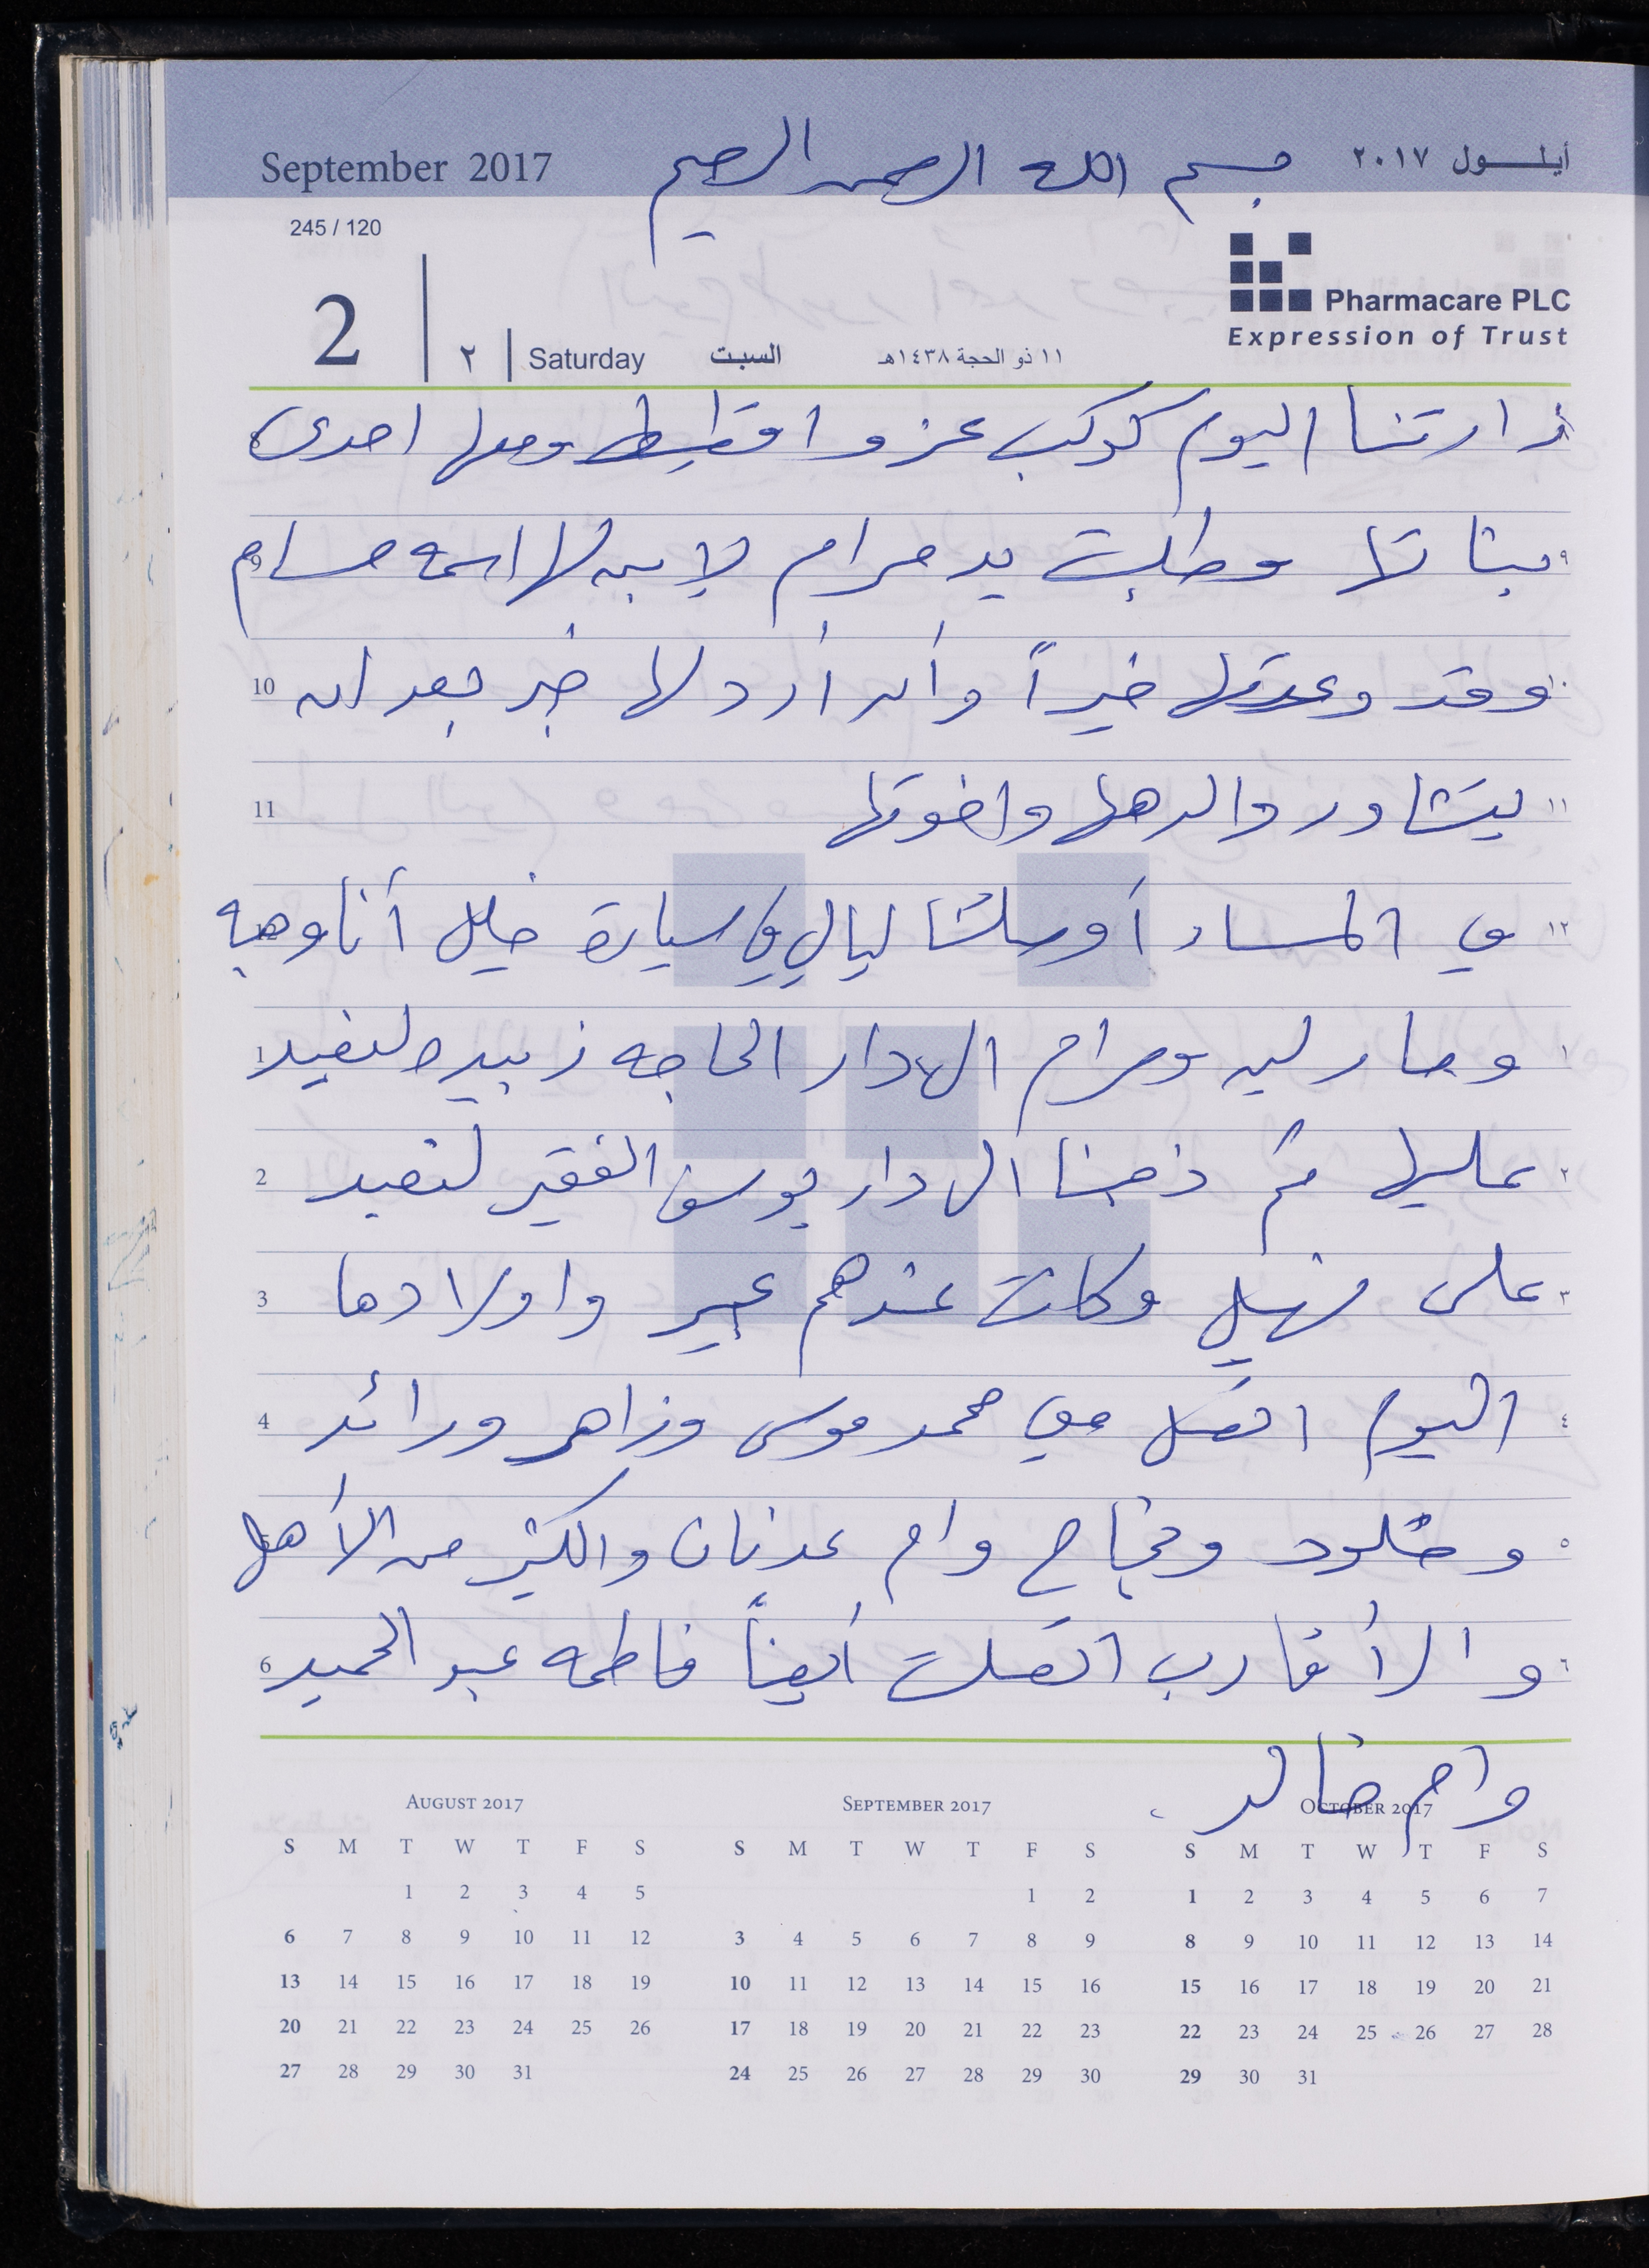 September 2017
بسم الله الرحمن الرحيم
أيلول ٢٠١٧
245 / 120
2 | ٢ | Saturday السبت ١١ ذو الحجة ١٤٣٨هـ
Pharmacare PLC
Expression of Trust
زارتنا اليوم كوكب عزو اقطيط ومعها احدى
٩ بناتها وطلبت يد مرام لابن لها اسمه حسام 9
١٠ وقد وعدتها خيراً وأن أرد لها خبر بعد ان 10
١١ يتشاور والدها واخوتها 11
١٢ في المساء أوصلتنا ليالي في سيارة خليل أنا وهبه
١ ومارلين ومرام الى دار الحاجه زبيده لنعيد 1
٢ عليها ثم ذهبنا الى دار يوسف الفقير لنعيد 2
٣ على نهيل وكانت عندهم عبير واولادها 3
٤ اليوم اتصل معي محمد موسى وزاهر ورائد 4
٥ وخلود ونجاح وام عدنان والكثير من الأهل
٦ والأقارب اتصلت أيضاً فاطمه عبد الحميد 6
وام خالد .
AUGUST 2017
S M T W T F S
1 2 3 4 5
6 7 8 9 10 11 12
13 14 15 16 17 18 19
20 21 22 23 24 25 26
27 28 29 30 31
SEPTEMBER 2017
S M T W T F S
1 2
3 4 5 6 7 8 9
10 11 12 13 14 15 16
17 18 19 20 21 22 23
24 25 26 27 28 29 30
OCTOBER 2017
S M T W T F S
1 2 3 4 5 6 7
8 9 10 11 12 13 14
15 16 17 18 19 20 21
22 23 24 25 26 27 28
29 30 31